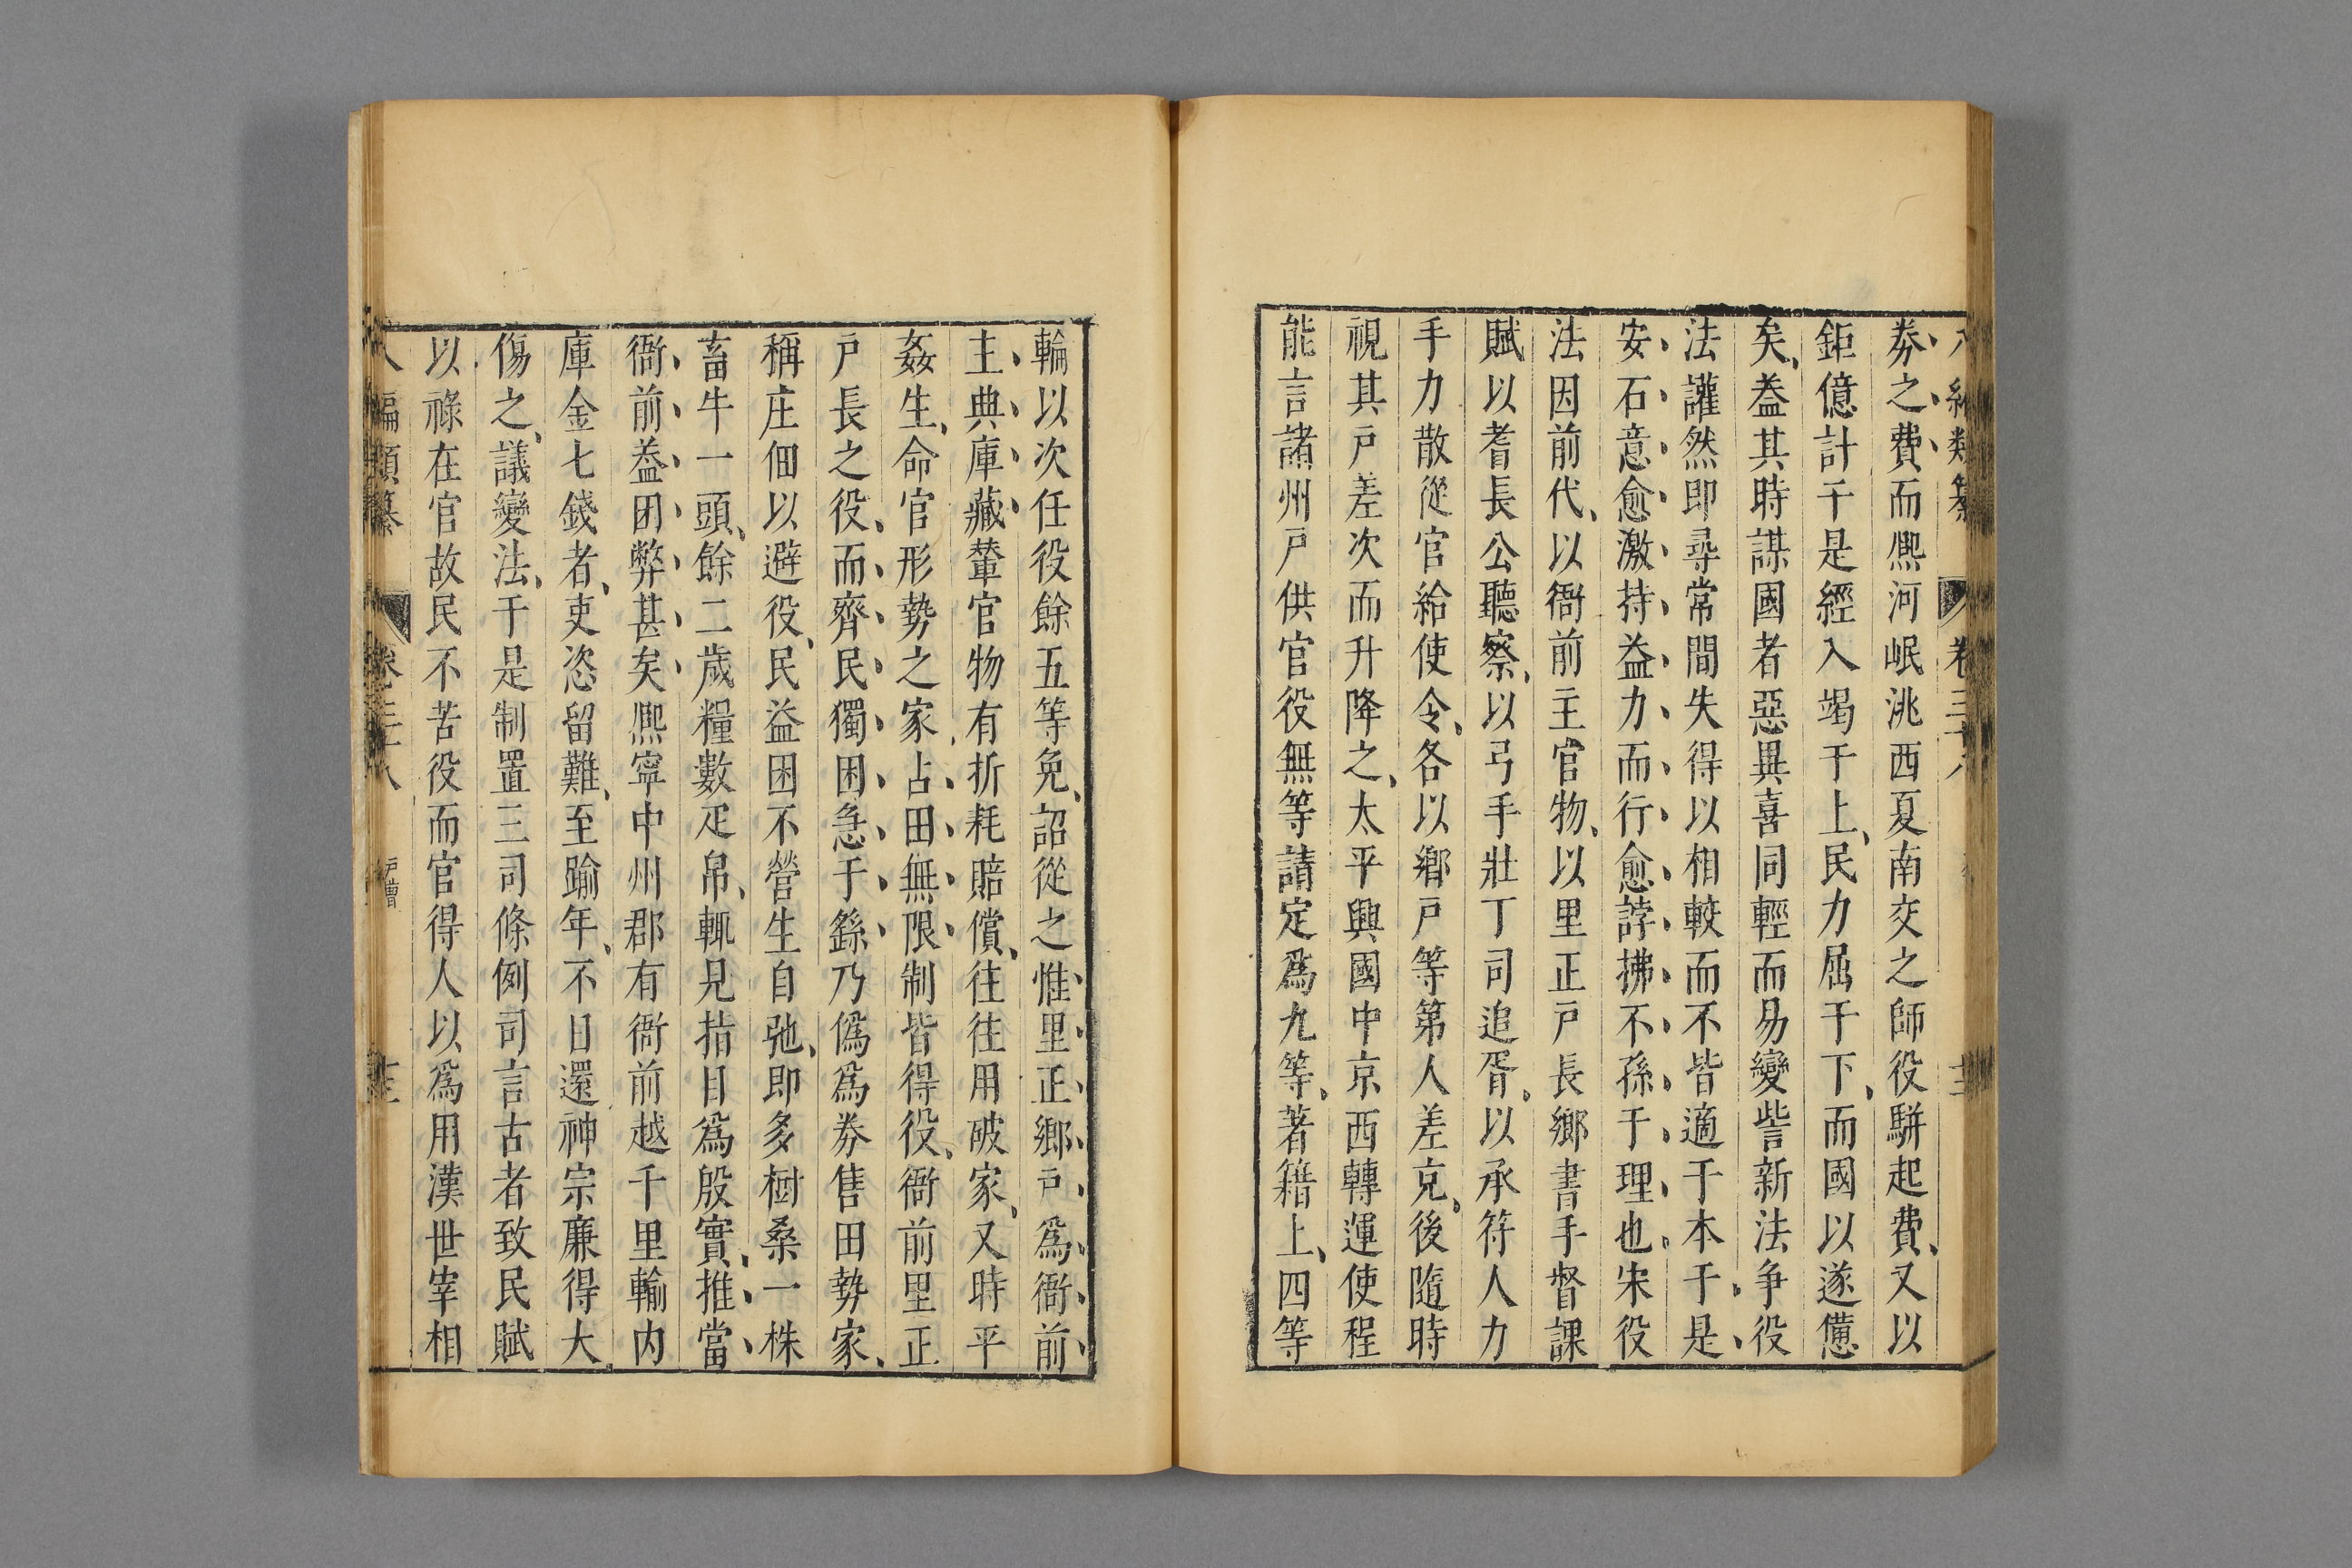 券之費而熈河岷洮西夏南交之師役駢起費又以
鉅億計于是經入竭于上民力屈于下而國以遂憊
矣葢其時謀國者惡異喜同輕而易變訾新法爭役
法讙然即尋常間失得以相較而不皆適于本于是
安石意愈激持益力而行愈誖拂不孫于理也宋役
法因前代以衙前主官物以里正戶長鄉書手督課
賦以耆長公聽察以弓手壯丁司追胥以承符人力
手力散從官給使令各以鄉戶等第人差充後隨時
視其戶差次而升降之太平興國中京西轉運使程
能言諸州戶供官役無等請定爲九等著籍上四等
輪以次任役餘五等免詔從之惟里正鄉戶爲衙前
主典庫藏輦官物有折耗賠償往往用破家又時平
姦生命官形勢之家占田無限制皆得役衙前里正
戶長之役而齊民獨困急于繇乃僞爲券售田勢家
稱庄佃以避役民益困不營生自弛即多樹桑一株
畜牛一頭餘二歲糧數疋帛輒見指目爲殷實推當
衙前葢困弊甚矣熈寧中州郡有衙前越千里輸內
庫金七錢者吏恣留難至踰年不日還神宗廉得大
傷之議變法于是制置三司條例司言古者致民賦
以祿在官故民不苦役而官得人以爲用漢世宰相
八編類纂 卷三十八 戶曹 十三